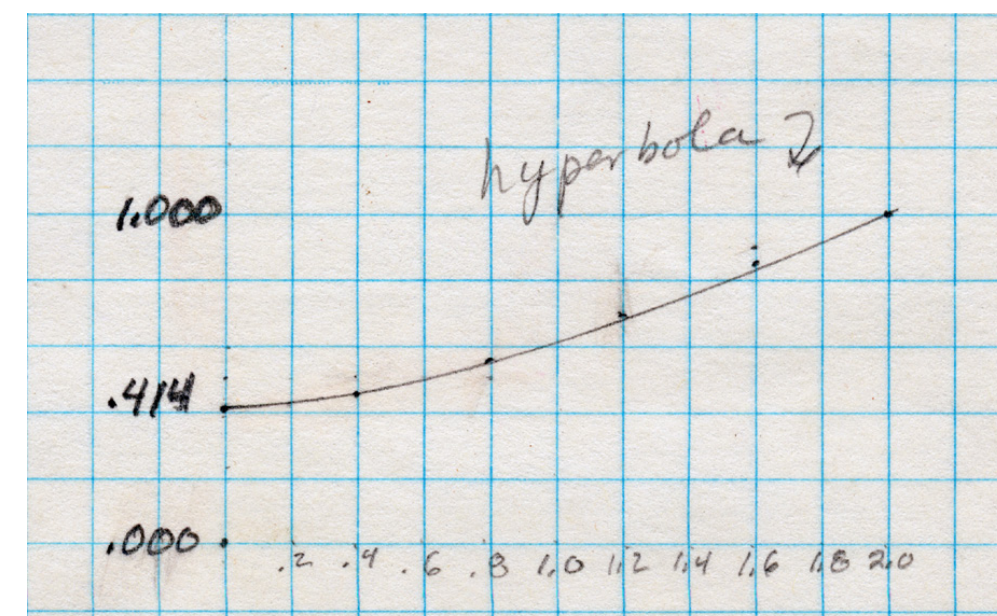 hyperbola
1.000
.414
.000 .2 .4 .6 .8 1.0 1.2 1.4 1.6 1.8 2.0